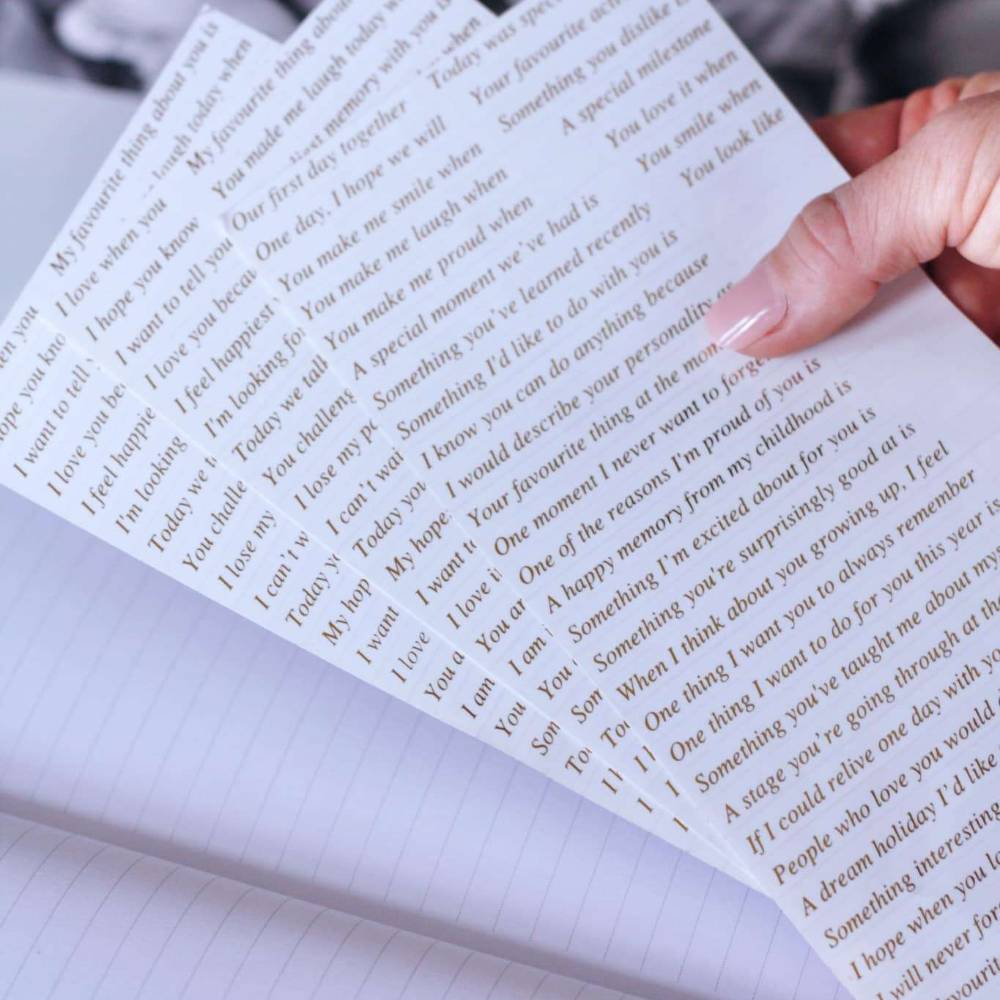 My favourite thing about you is
laugh today when
I love when you
I hope you know
I want to tell you
I love you
I feel happiest
I'm looking
Today we
You challenge
I lose my
I can't
Today you
My hope
I want
I love
You
I am
You
when you
hope you
I want to tell
I love you
I feel
I'm looking
Today we
You
I lose my
I can't
Today
My
I want
I love
You
I am
You
My favourite thing about
You made me laugh today
memory with you is
when
Our first day together
One day, I hope we will
You make me smile when
You make me laugh when
You make me proud when
A special moment we've had is
Something you've learned recently
Something I'd like to do with you is
I know you can do anything because
I would describe your personality as
Your favourite thing at the
One moment I never want to
One of the reasons I'm proud of you is
A happy memory from my childhood is
Something I'm excited about for you is
Something you're surprisingly good at is
When I think about you growing up, I feel
One thing I want you to always remember
One thing I want to do for you this year is
Something you've taught me about my
A stage you're going through at the
If I could relive one day with
People who love you would
A dream holiday I'd like
Something interesting
I hope when you
will never
Today was
Your favourite
Something you dislike
A special milestone
You love it when
You smile when
You look like